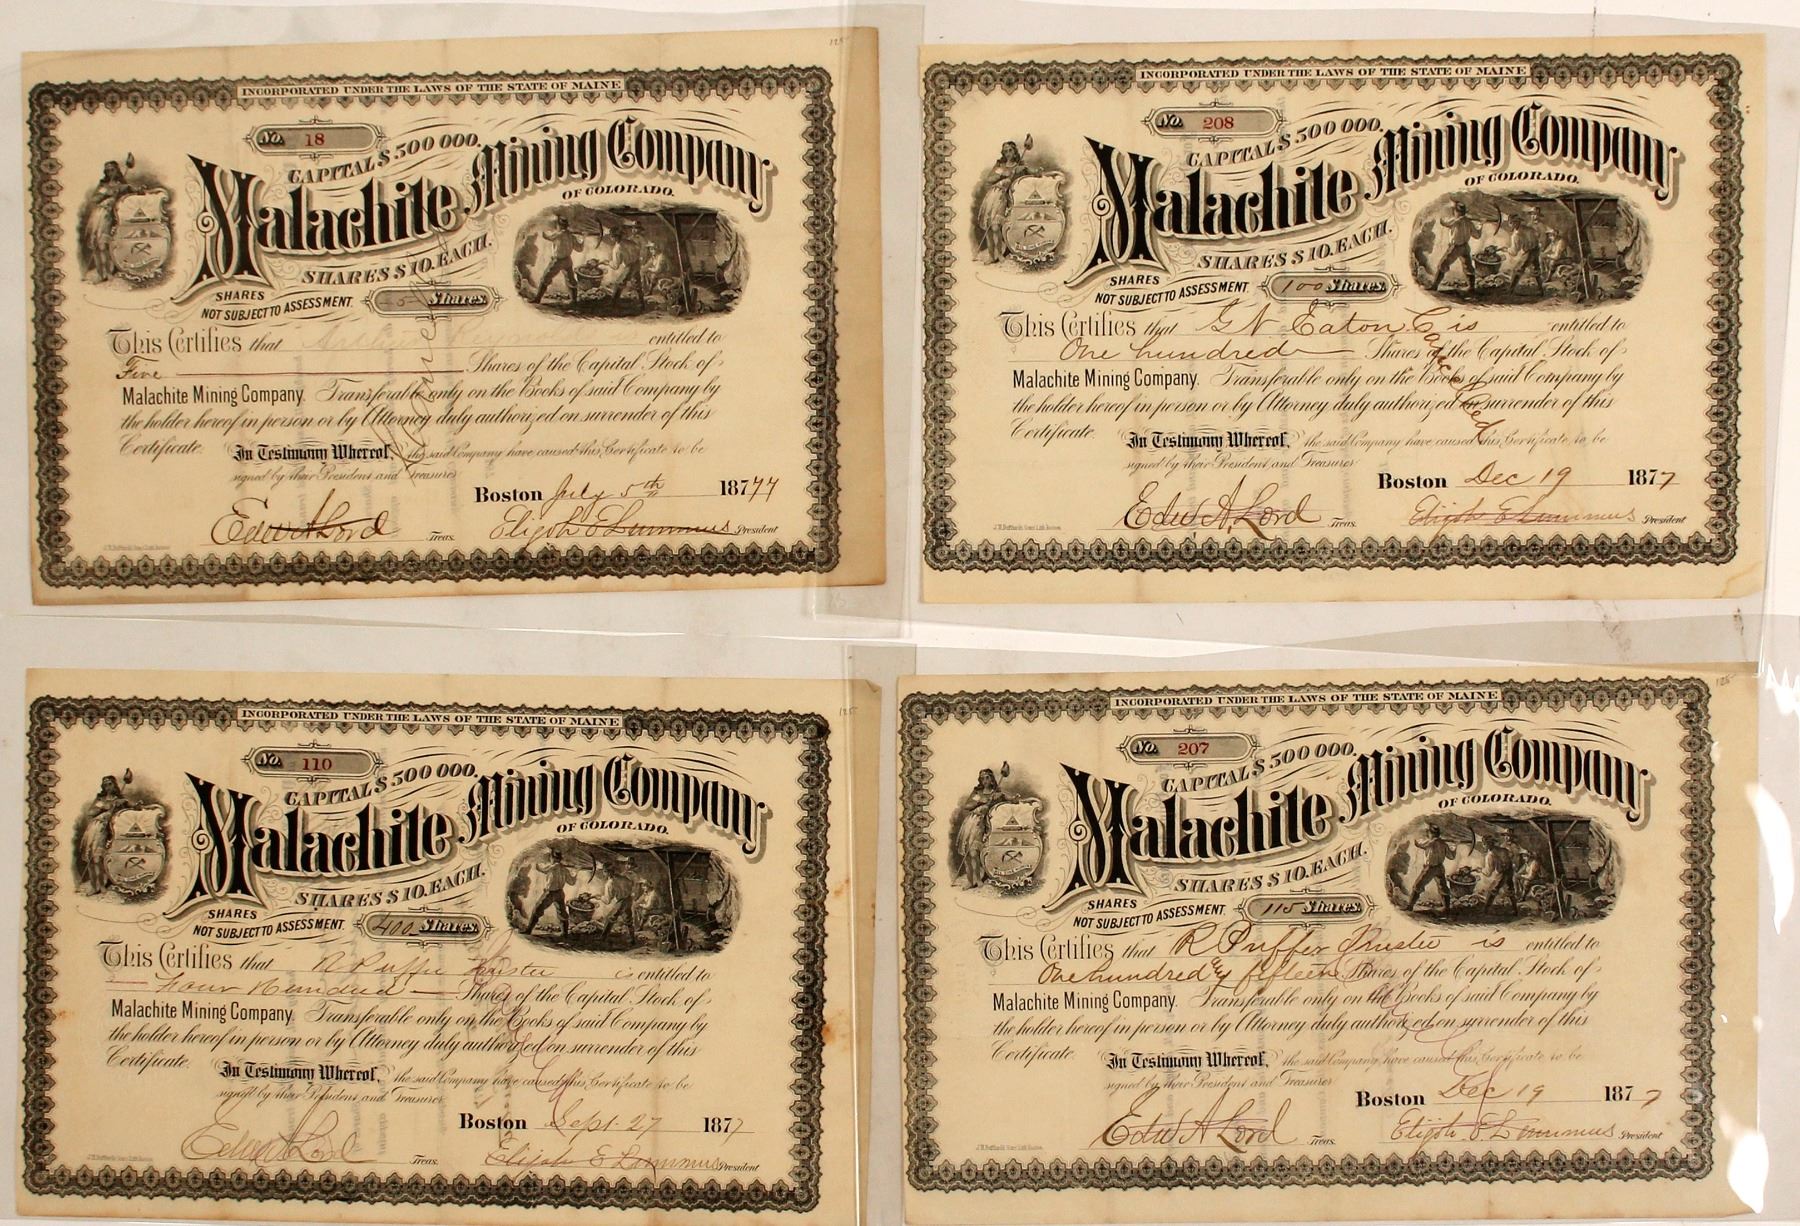 125
INCORPORATED UNDER THE LAWS OF THE STATE OF MAINE
No. 18
CAPITAL $500 000.
Malachite Mining Company
OF COLORADO.
SHARES $10. EACH.
SHARES
NOT SUBJECT TO ASSESSMENT.
5 Shares.
This Certifies that entitled to
Five Shares of the Capital Stock of
Malachite Mining Company. Transferable only on the Books of said Company by
the holder hereof in person or by Attorney duly authorized on surrender of this
Certificate. In Testimony Whereof, the said Company have caused this Certificate to be
signed by their President and Treasurer
Boston July 5th 18777
Edw A Lord Treas. Elijah E Lummus President
INCORPORATED UNDER THE LAWS OF THE STATE OF MAINE
No. 208
CAPITAL $500 000.
Malachite Mining Company
OF COLORADO.
SHARES $10. EACH.
SHARES
NOT SUBJECT TO ASSESSMENT.
100 Shares.
This Certifies that G N Eaton C is entitled to
One hundred Shares of the Capital Stock of
Malachite Mining Company. Transferable only on the Books of said Company by
the holder hereof in person or by Attorney duly authorized on surrender of this
Certificate. In Testimony Whereof, the said Company have caused this Certificate to be
signed by their President and Treasurer
Cancelled
Boston Dec 19 1877
Edw A Lord Treas. Elijah E Lummus President
125
INCORPORATED UNDER THE LAWS OF THE STATE OF MAINE
No. 110
CAPITAL $500 000.
Malachite Mining Company
OF COLORADO.
SHARES $10. EACH.
SHARES
NOT SUBJECT TO ASSESSMENT.
400 Shares.
This Certifies that R Puffer Trustee is entitled to
Four Hundred Shares of the Capital Stock of
Malachite Mining Company. Transferable only on the Books of said Company by
the holder hereof in person or by Attorney duly authorized on surrender of this
Certificate. In Testimony Whereof, the said Company have caused this Certificate to be
signed by their President and Treasurer
Boston Sept. 27 1877
Edw A Lord Treas. Elijah E Lummus President
125
INCORPORATED UNDER THE LAWS OF THE STATE OF MAINE
No. 207
CAPITAL $500 000.
Malachite Mining Company
OF COLORADO.
SHARES $10. EACH.
SHARES
NOT SUBJECT TO ASSESSMENT.
115 Shares.
This Certifies that R Puffer Trustee is entitled to
One hundred & fifteen Shares of the Capital Stock of
Malachite Mining Company. Transferable only on the Books of said Company by
the holder hereof in person or by Attorney duly authorized on surrender of this
Certificate. In Testimony Whereof, the said Company have caused this Certificate to be
signed by their President and Treasurer
Boston Dec 19 1877
Edw A Lord Treas. Elijah E Lummus President